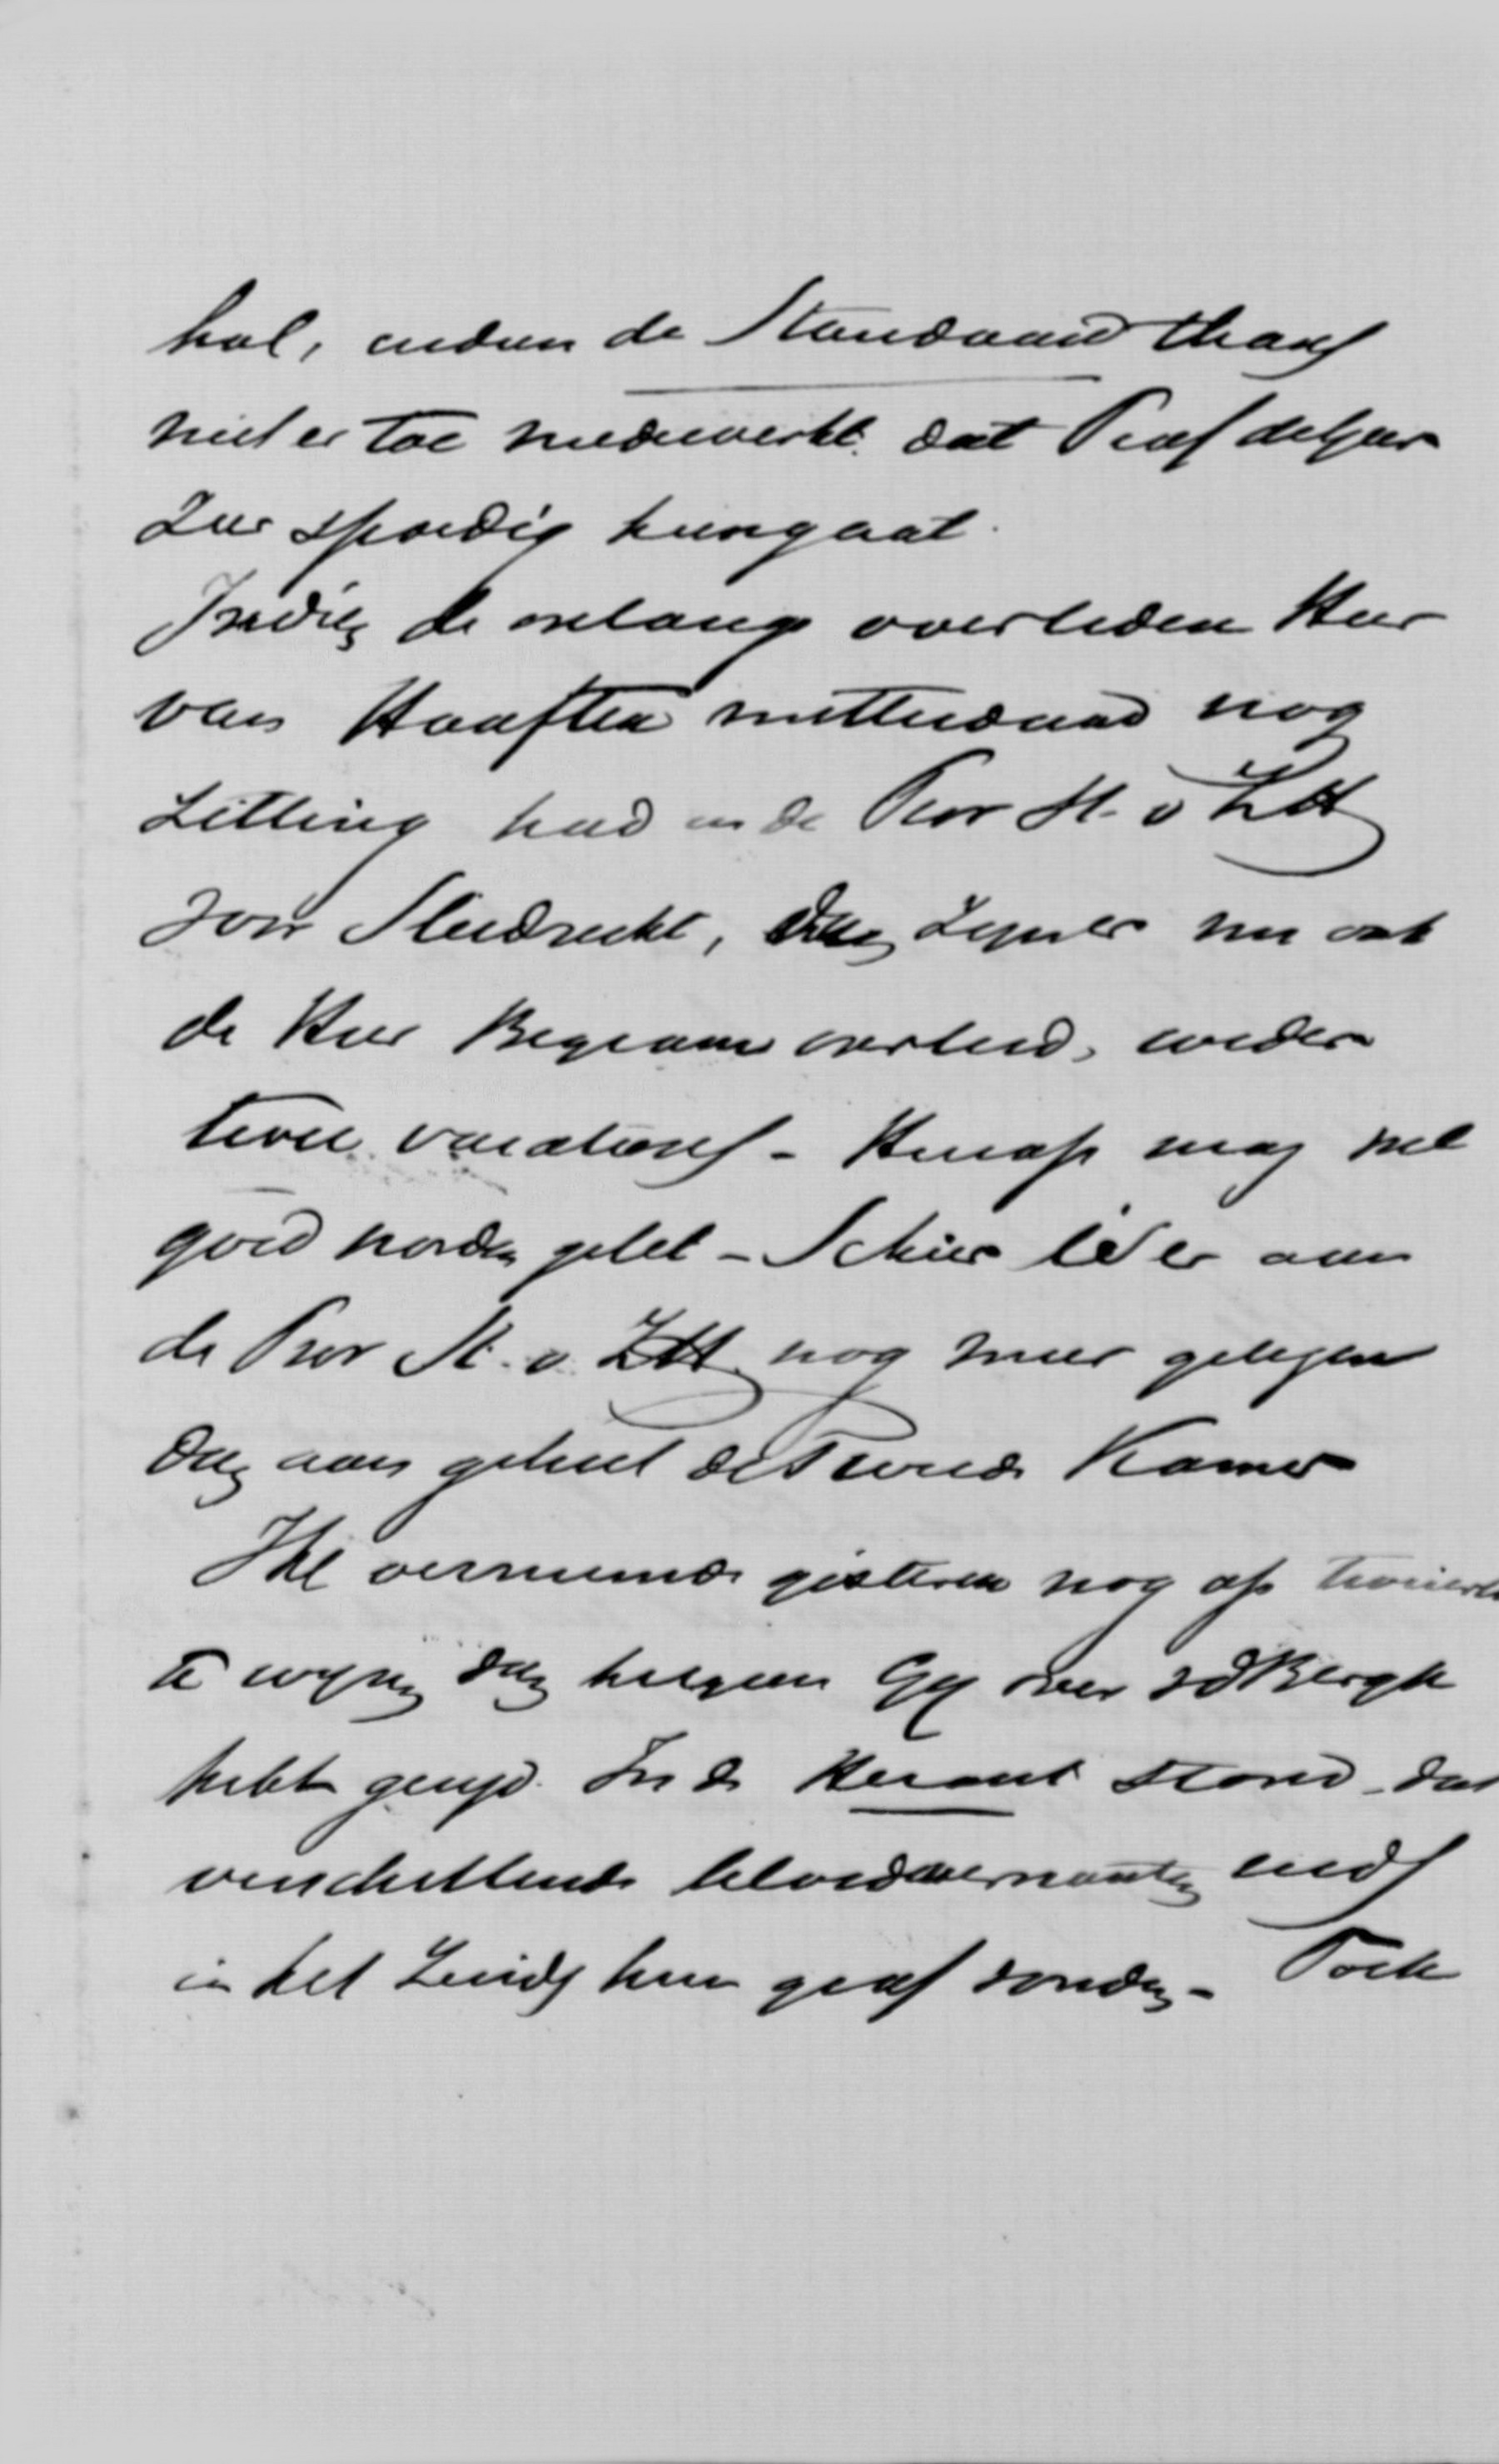 hal, indien de Standaard thans
niet er toe medewerkt dat Prof de Geer
zeer spoedig heengaat.
Indien de onlangs overleden Heer
van Haaften metterdaad nog
zitting had in de Prov St. v ZH
voor Sliedrecht, dan zijn er nu ook
de Heer Begram overleed, weder
twee vacatures - Hierop mag wel
goed worden gelet - Schier is er aan
de Prov St. v. ZH nog meer gelegen
dan aan geheel de Tweede Kamer
Ik vernam gisteren nog op
te wijzen dan hetgeen Gij over vd Bergh
hebt gezegd. In de Heraut stond dat
verschillende bloedverwanten reeds
in het Zuiden hun graf vonden - Toch